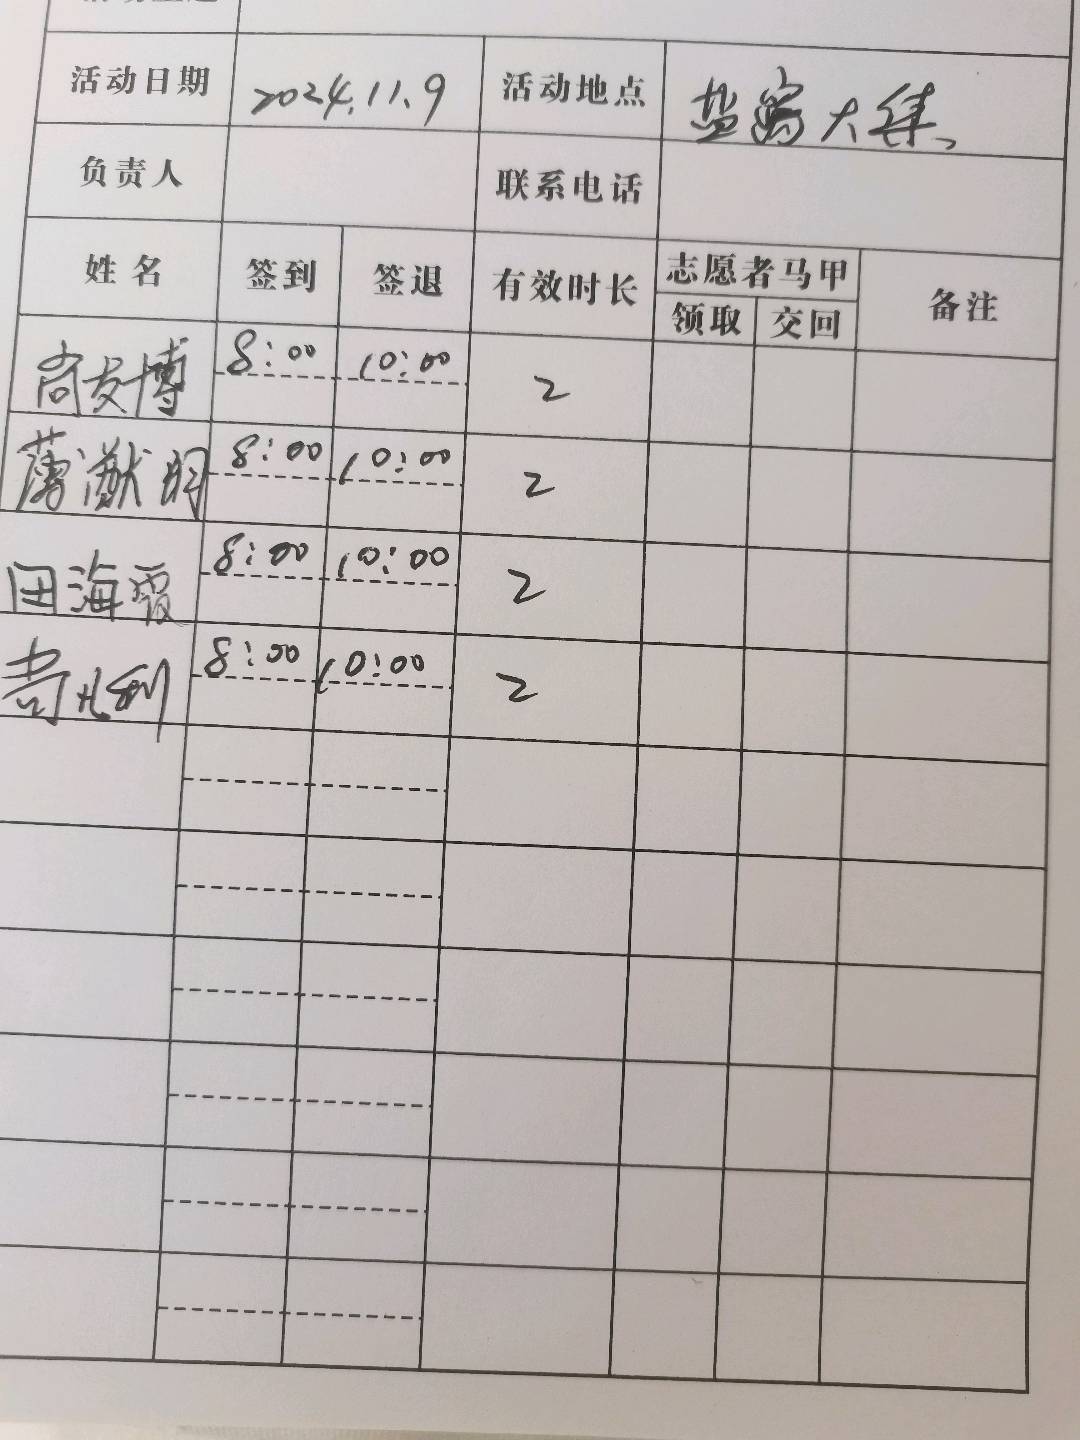 活动日期 2024.11.9 活动地点 盐窝大集
负责人 联系电话
姓名 签到 签退 有效时长 志愿者马甲 备注
领取 交回
尚友博 8:00 10:00 2
薄献明 8:00 10:00 2
田海霞 8:00 10:00 2
8:00 10:00 2